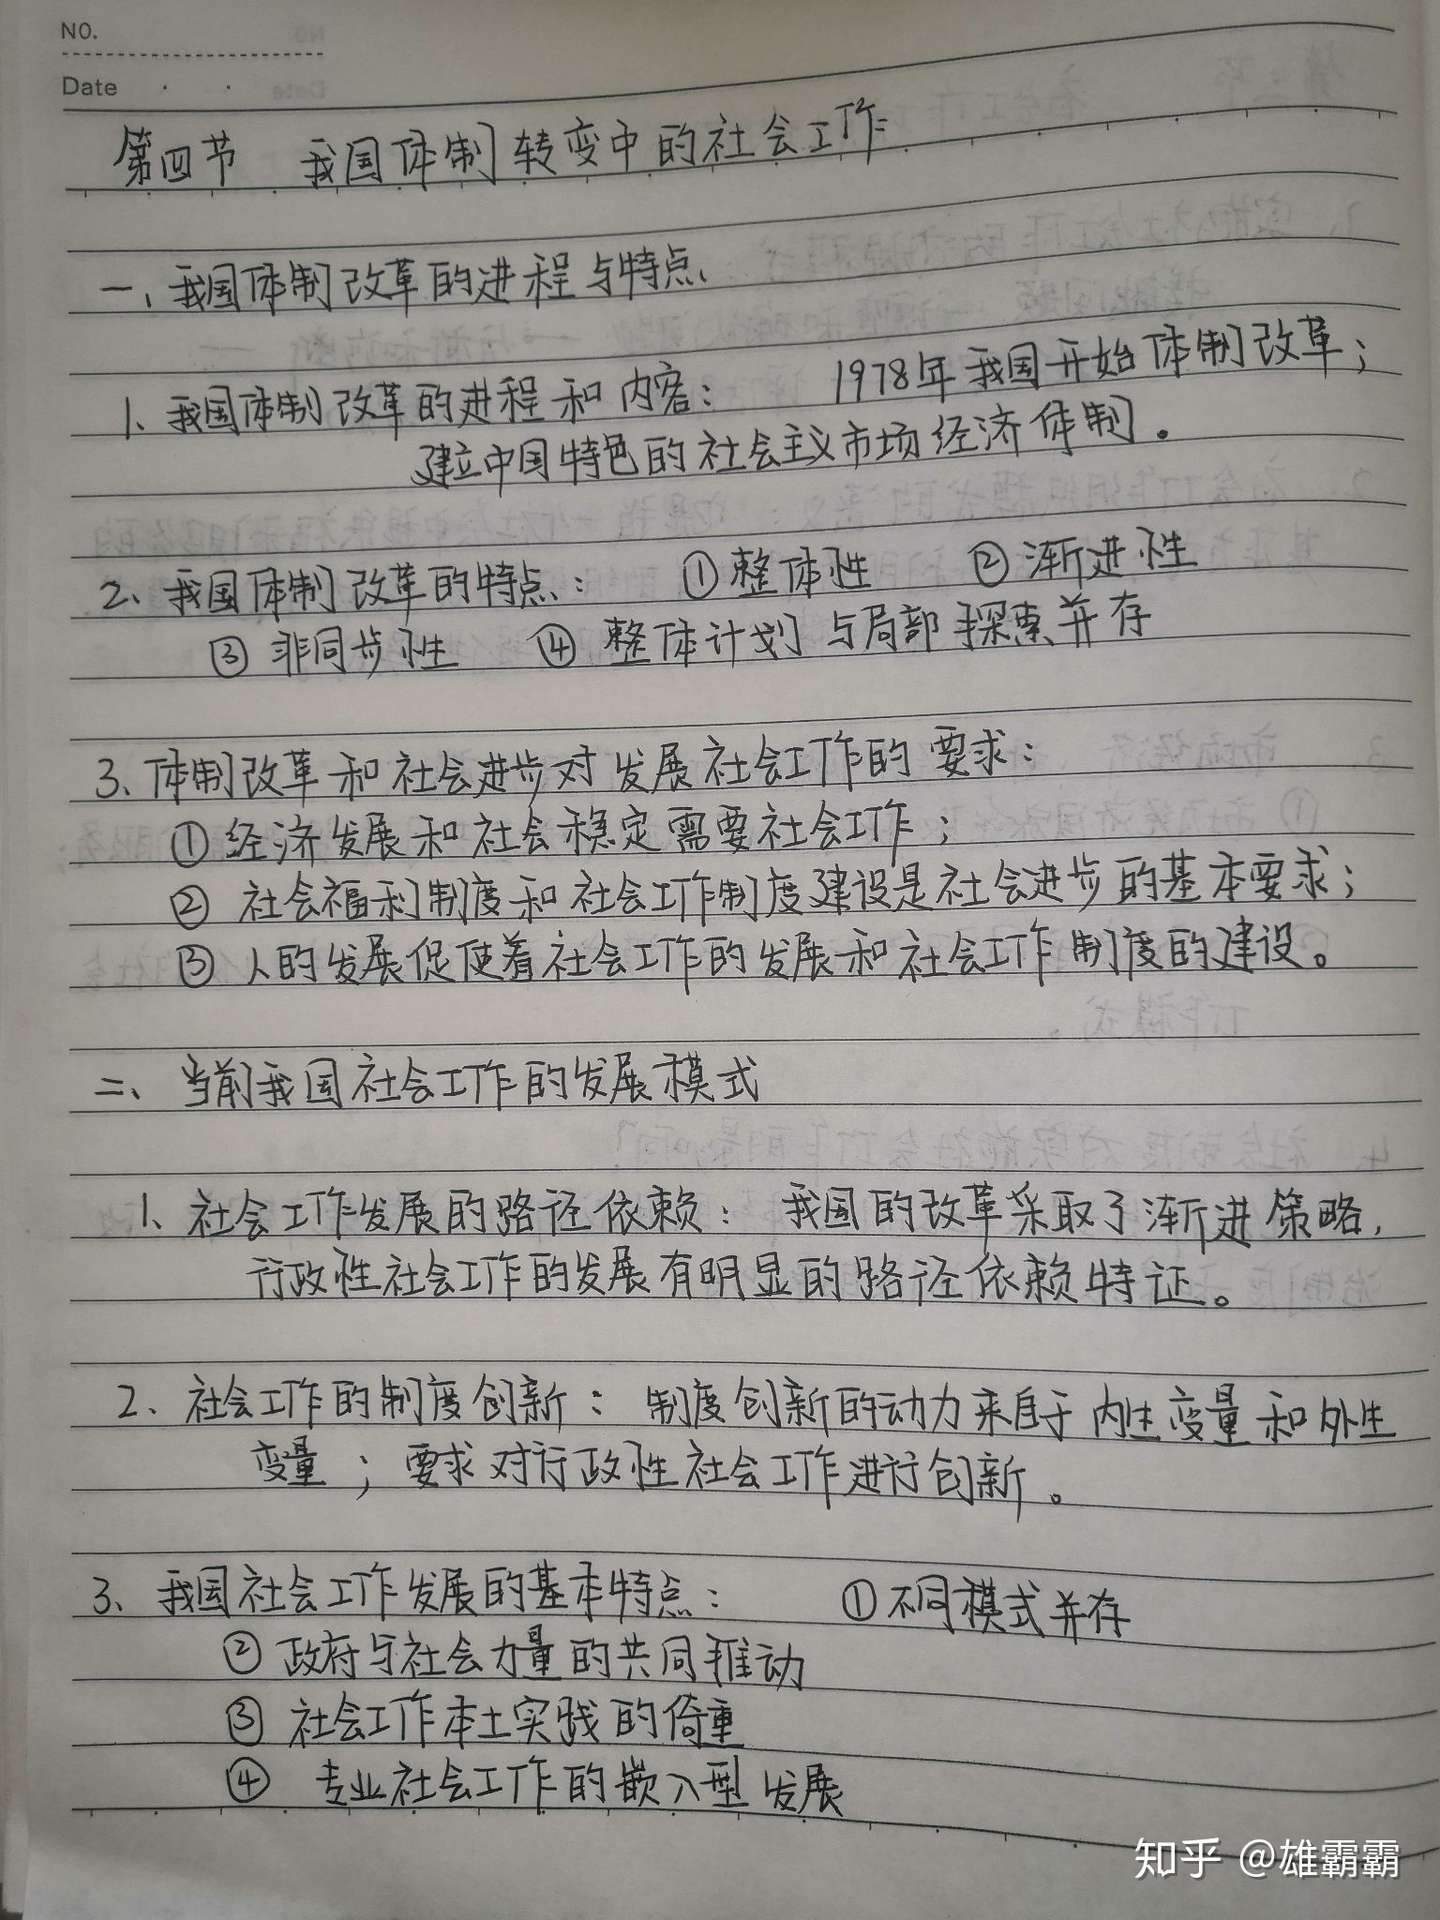 NO.
Date
第四节 我国体制转变中的社会工作
一、我国体制改革的进程与特点、
1、我国体制改革的进程和内容: 1978年我国开始体制改革;
建立中国特色的社会主义市场经济体制.
2、我国体制改革的特点: ①整体性 ②渐进性
③非同步性 ④整体计划与局部探索并存
3、体制改革和社会进步对发展社会工作的要求:
①经济发展和社会稳定需要社会工作;
②社会福利制度和社会工作制度建设是社会进步的基本要求;
③人的发展促使着社会工作的发展和社会工作制度的建设。
二、当前我国社会工作的发展模式
1、社会工作发展的路径依赖: 我国的改革采取了渐进策略,
行政性社会工作的发展有明显的路径依赖特证。
2、社会工作的制度创新: 制度创新的动力来自于内生变量和外生
变量; 要求对行政性社会工作进行创新。
3、我国社会工作发展的基本特点: ①不同模式并存
②政府与社会力量的共同推动
③社会工作本土实践的倚重
④专业社会工作的嵌入型发展
知乎 @雄霸霸